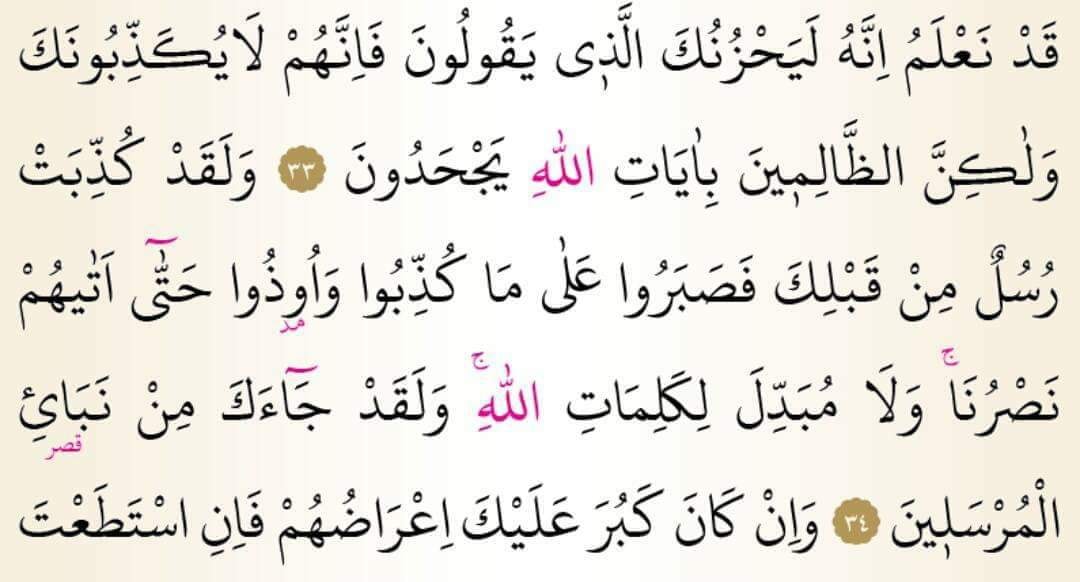 قَدْ نَعْلَمُ اِنَّهُ لَيَحْزُنُكَ الَّذ۪ى يَقُولُونَ فَاِنَّهُمْ لَايُكَذِّبُونَكَ
وَلٰكِنَّ الظَّالِم۪ينَ بِاٰيَاتِ اللّٰهِ يَجْحَدُونَ ٣٣ وَلَقَدْ كُذِّبَتْ
رُسُلٌ مِنْ قَبْلِكَ فَصَبَرُوا عَلٰى مَا كُذِّبُوا وَاُوذُوا حَتّٰٓى اَتٰيهُمْ
مد
نَصْرُنَاۚ وَلَا مُبَدِّلَ لِكَلِمَاتِ اللّٰهِۚ وَلَقَدْ جَٓاءَكَ مِنْ نَبَائِ
قصر
الْمُرْسَل۪ينَ ٣٤ وَاِنْ كَانَ كَبُرَ عَلَيْكَ اِعْرَاضُهُمْ فَاِنِ اسْتَطَعْتَ